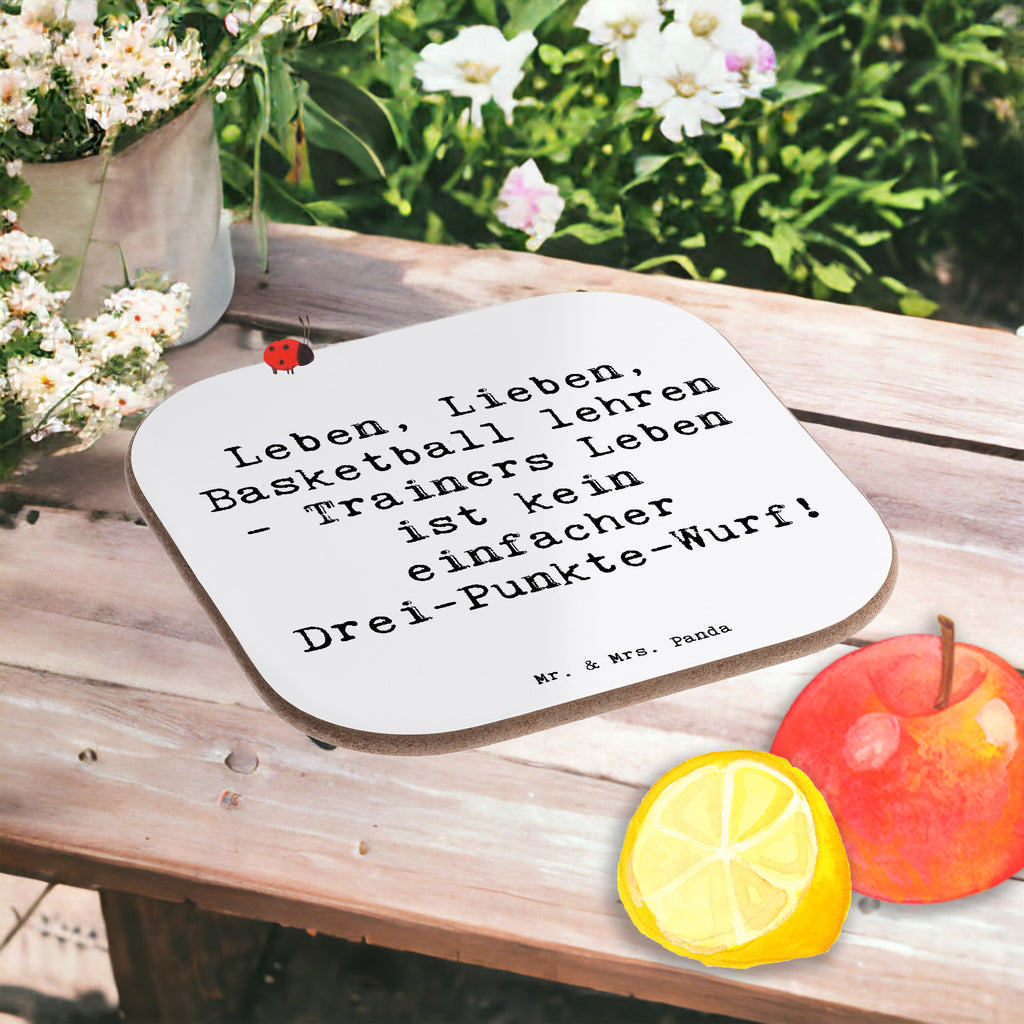 Leben, Lieben,
Basketball lehren
- Trainers Leben
ist kein
einfacher
Drei-Punkte-Wurf!
Mr. & Mrs. Panda